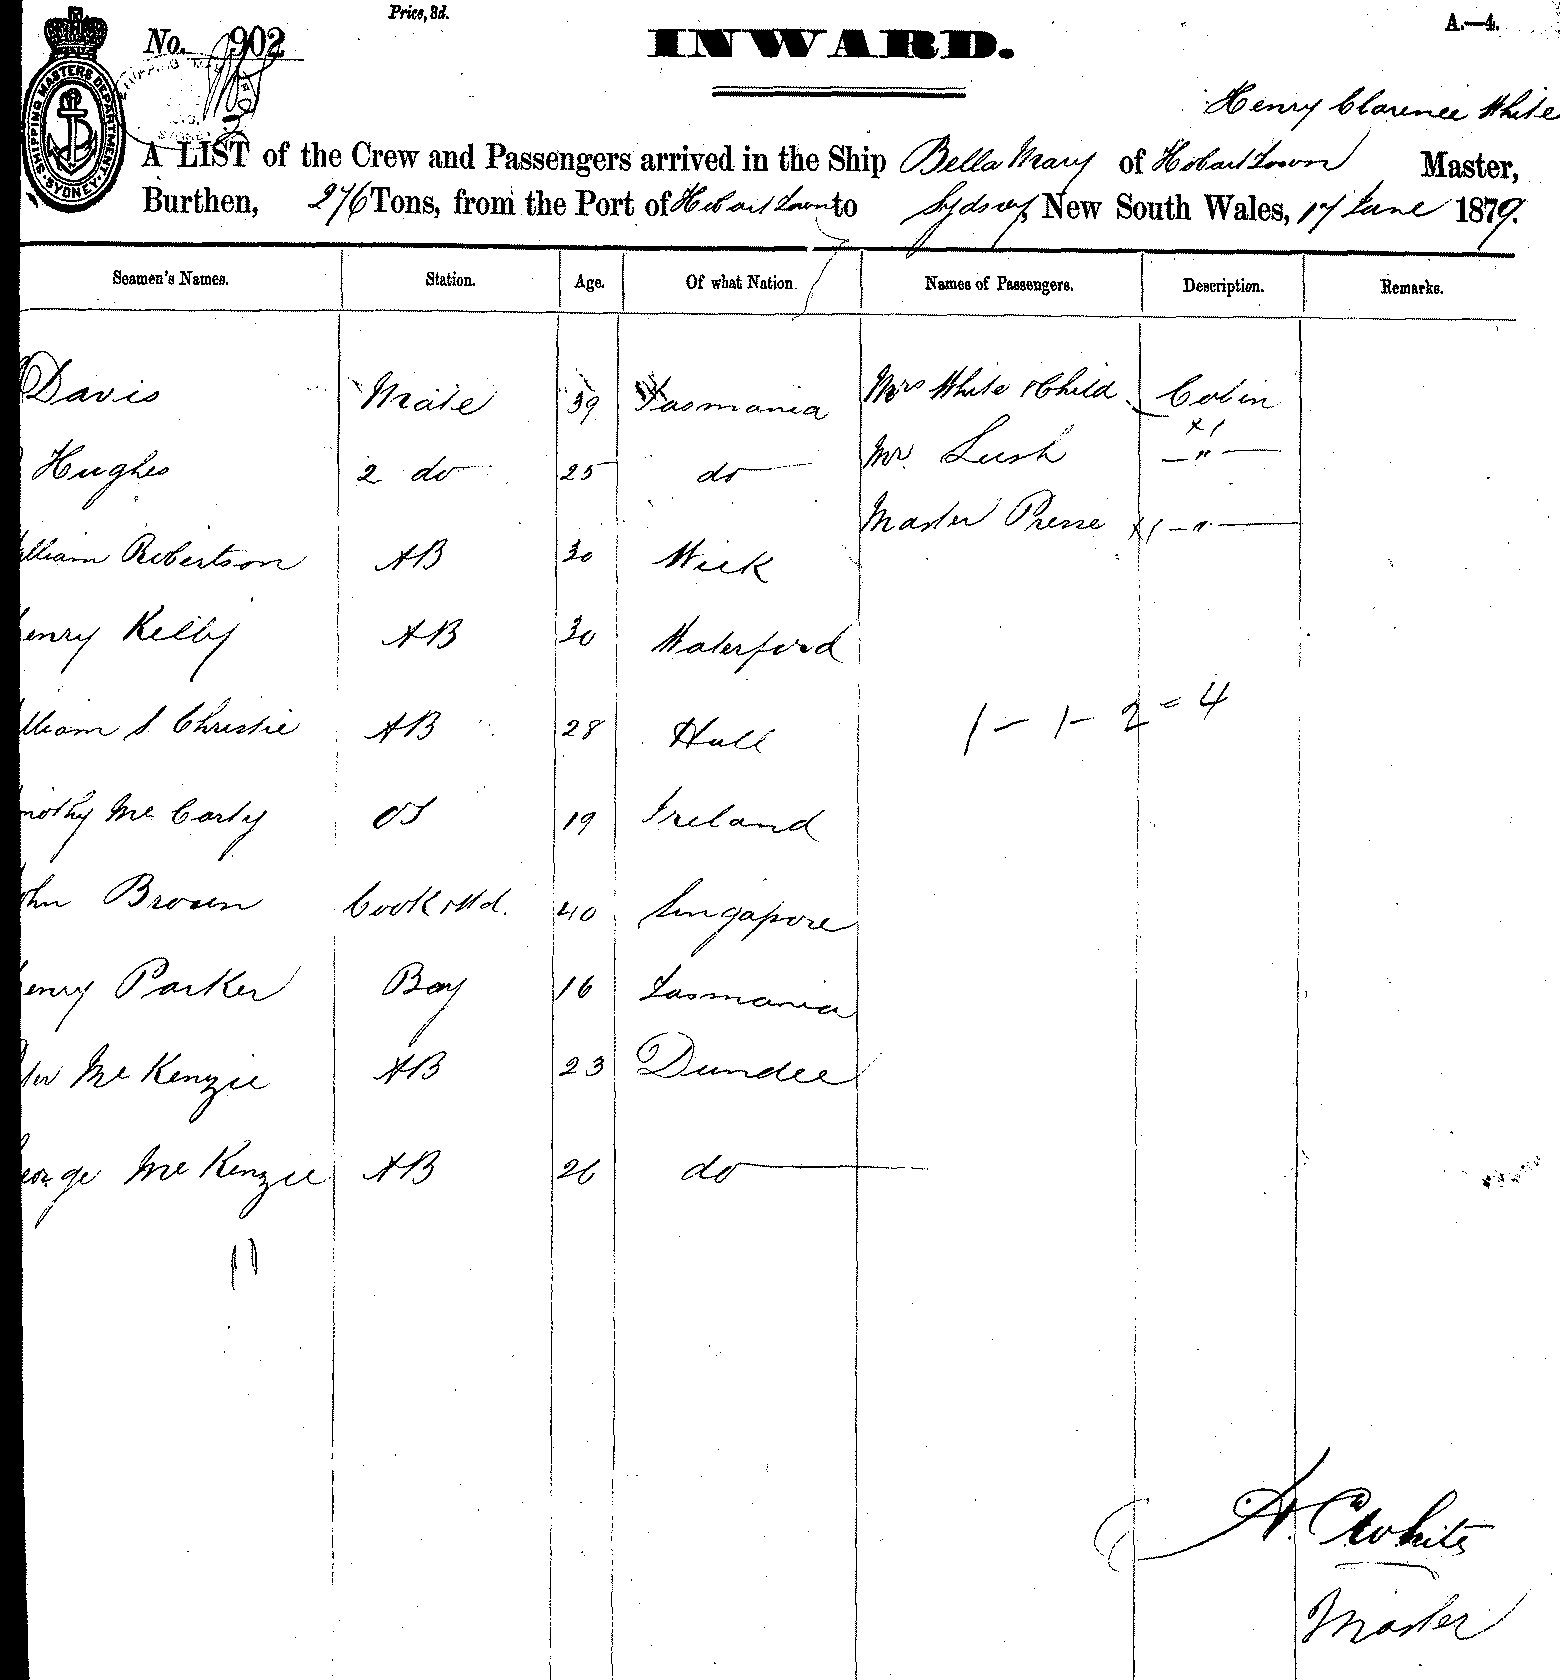 Price, 3d.
A.—4.
No. 902
INWARD.
SHIPPING MASTERS DEPARTMENT SYDNEY
Henry Clarence White
A LIST of the Crew and Passengers arrived in the Ship Bella Mary of Hobart Town Master,
Burthen, 276 Tons, from the Port of Hobart Town to Sydney New South Wales, 17 June 1879.
Seamen's Names. Station. Age. Of what Nation. Names of Passengers. Description. Remarks.
Davis Mate 39 Tasmania Mrs White & Child Cabin
Hughes 2 do 25 do Mr. Lush — " —
Master — " —
illiam Robertson AB 30 Wick
enry Kelly AB 30 Waterford
illiam S Christie AB 28 Hull
1 - 1 - 2 = 4
mothy McCarty OS 19 Ireland
ohn Brown Cook & Std. 40 Singapore
enry Parker Boy 16 Tasmania
ter McKenzie AB 23 Dundee
eorge McKenzie AB 26 do
11
H. C White
Master